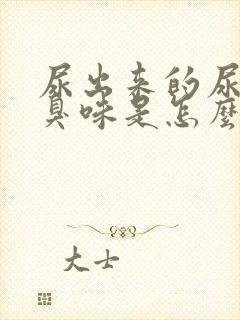 尿出来的尿
臭味是怎麼
大士